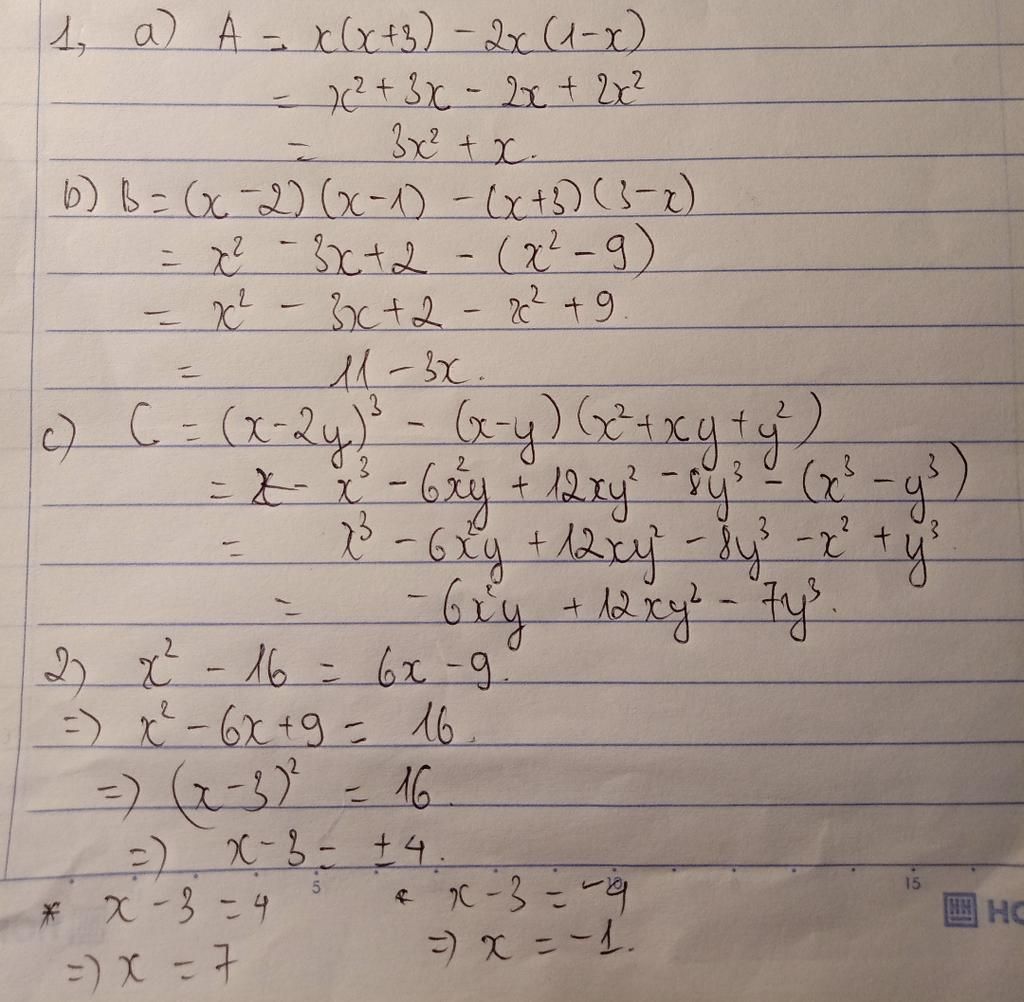 1, a) A = x(x+3) - 2x(1-x)
= x² + 3x - 2x + 2x²
= 3x² + x.
b) B = (x-2)(x-1) - (x+3)(3-x)
= x² - 3x + 2 - (x² - 9)
= x² - 3x + 2 - x² + 9.
= 11 - 3x.
c) C = (x-2y)³ - (x-y)(x²+xy+y²)
= x³ - 6x²y + 12xy² - 8y³ - (x³ - y³)
= x³ - 6x²y + 12xy² - 8y³ - x² + y³.
= -6x²y + 12xy² - 7y³.
2) x² - 16 = 6x - 9.
=> x² - 6x + 9 = 16.
=> (x-3)² = 16.
=> x - 3 = ±4.
5 10 15
* x - 3 = 4 * x - 3 = -4
=> x = 7 => x = -1.
HH HO